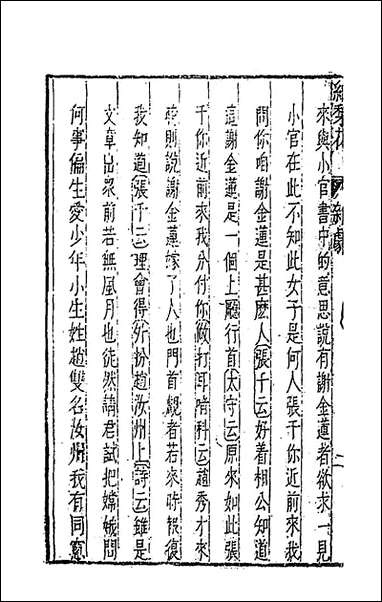 紅梨花 雜劇 二
來與小官書中的意思說有謝金蓮者欲求一見
小官在此不知此女子是何人張千你近前來我
問你咱謝金蓮是甚麽人(張千云)好着相公知道
這謝金蓮是一個上廳行首(太守云)原來如此張
千你近前來我分付你(做打耳喑科云)趙秀才來
時則說謝金蓮嫁了人也門首覷者若來時報復
我知道(張千云)理會得(外扮趙汝州上)(詩云)雖是
文章出衆前若無風月也徒然請君試把嫦娥問
何事偏生愛少年小生姓趙雙名汝州我有同窓